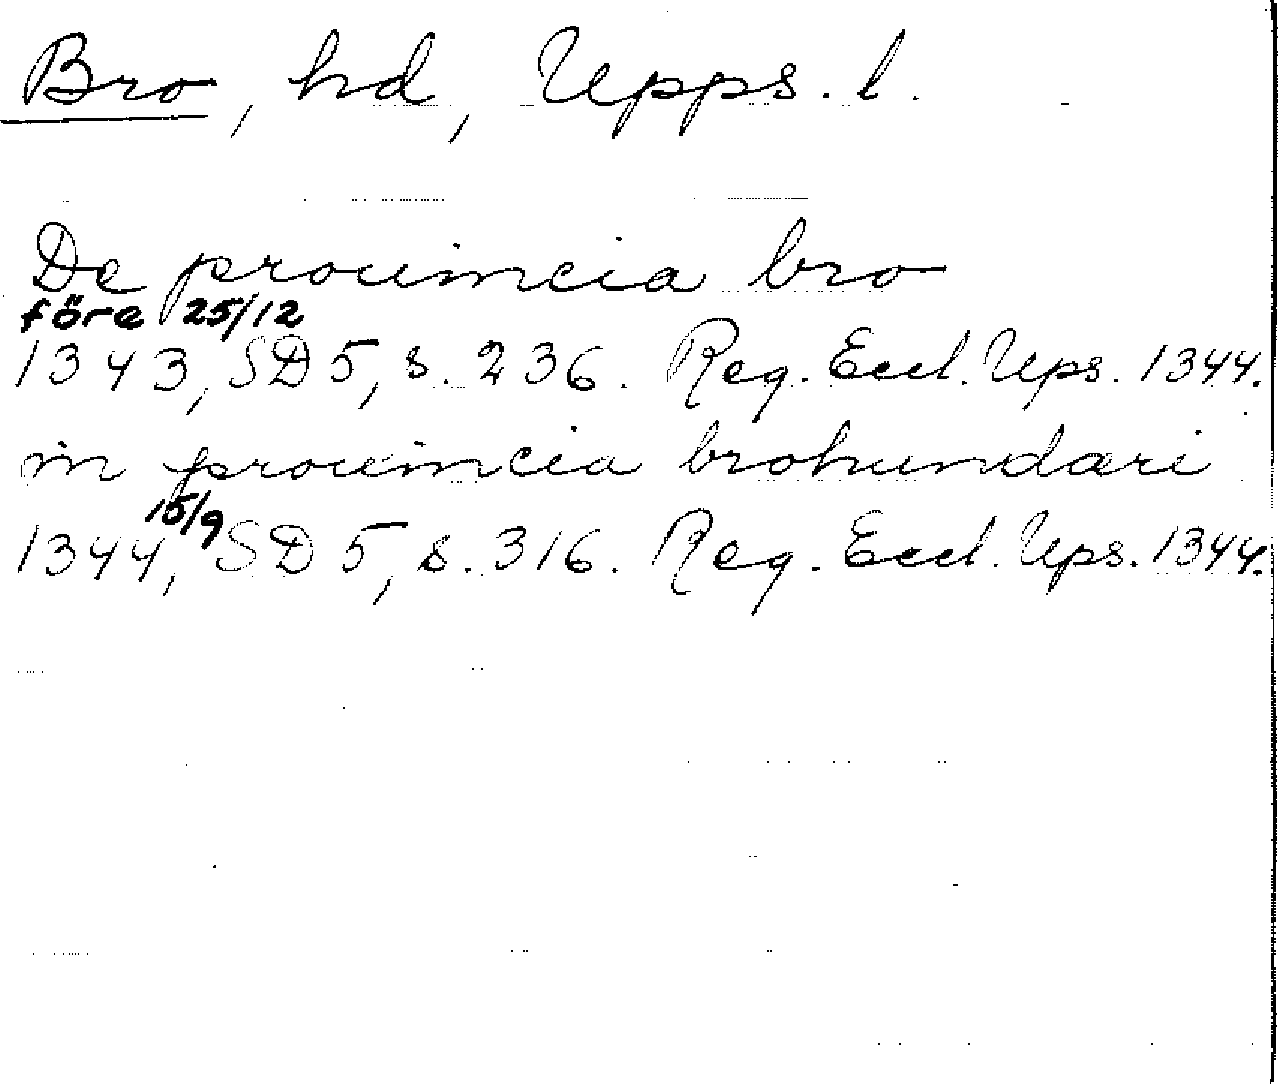 Bro, hd, Upps. l.
De prouincia bro
före 25/12
1343, SD 5, s. 236. Reg. Eccl. Ups. 1344.
in prouincia brohundari
15/9
1344, SD 5, s. 316. Reg. Eccl. Ups. 1344.